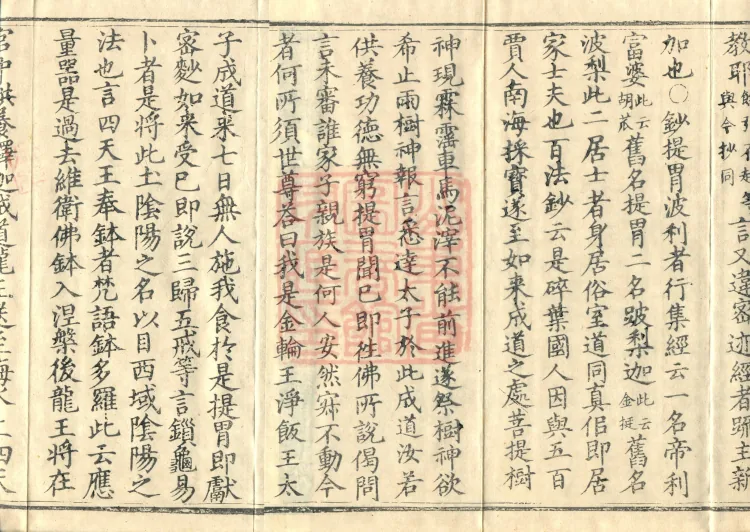 言又違密迹經者疏主新
與今抄同
加也○鈔提胃波利者行集經云一名帝利
富婆此云胡苽舊名提胃二名䟦梨迦此云金挺舊名
波梨此二居士者身居俗室道同真侣即居
家士夫也百法鈔云是碎葉國人因與五百
賈人南海採寳遂至如来成道之處菩提樹
神現霖霪車馬泥澤不能前進遂祭樹神欲
希止雨樹神報言悉達太子於此成道汝若
供養功徳無窮提胃聞已即徃佛所說偈問
言未審誰家子親族是何人安然寂不動今
者何所須世尊荅曰我是金輪王淨飯王太
子成道来七日無人施我食於是提胃即獻
宻麨如来受已即說三歸五戒等言鎖龜易
卜者是將此圡隂陽之名以目西域隂陽之
法也言四天王奉鉢者梵語鉢多羅此云應
量器是過去維衛佛鉢入涅槃後龍王將在
宫中供養釋迦成道龍王送至海人二四天